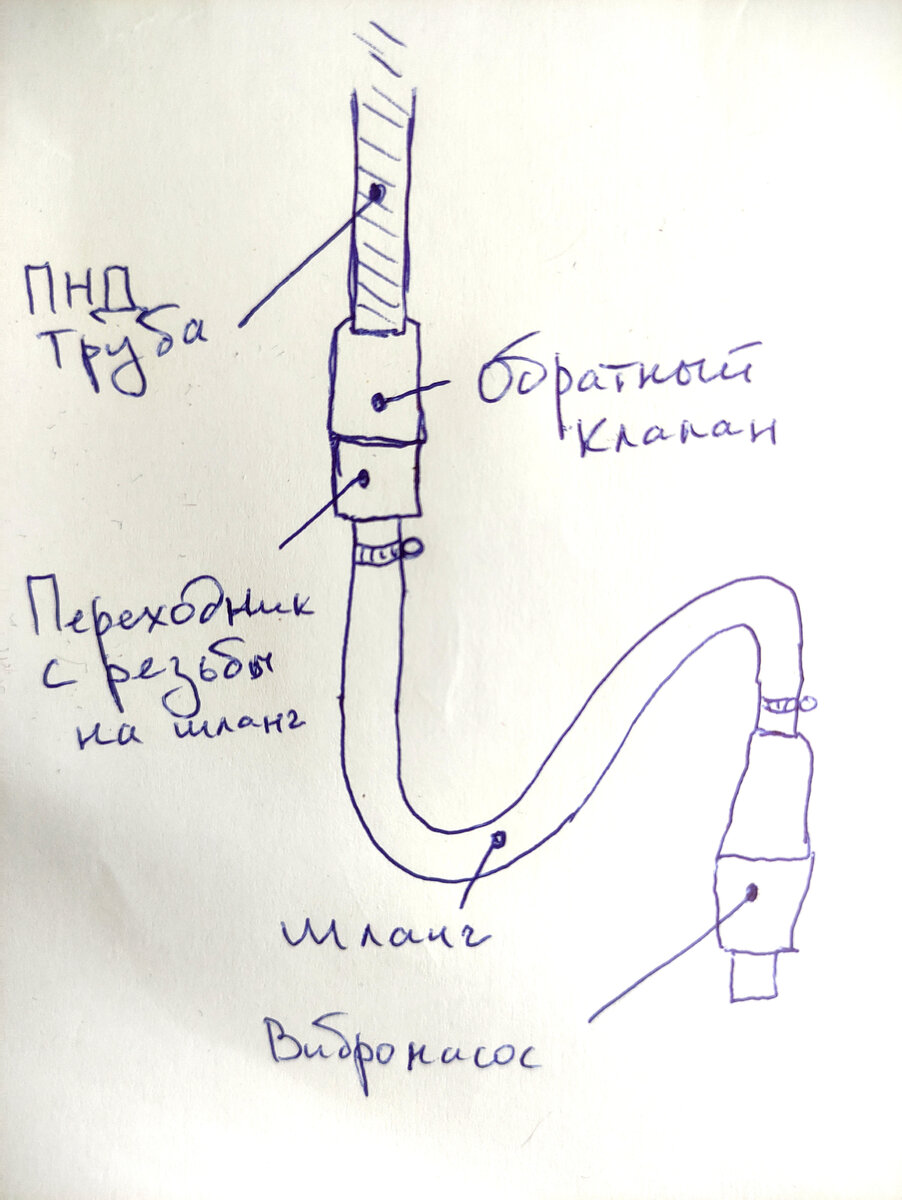 ПНД
труба
Обратный
клапан
Переходник
с резьбы
на шланг
Шланг
Вибронасос